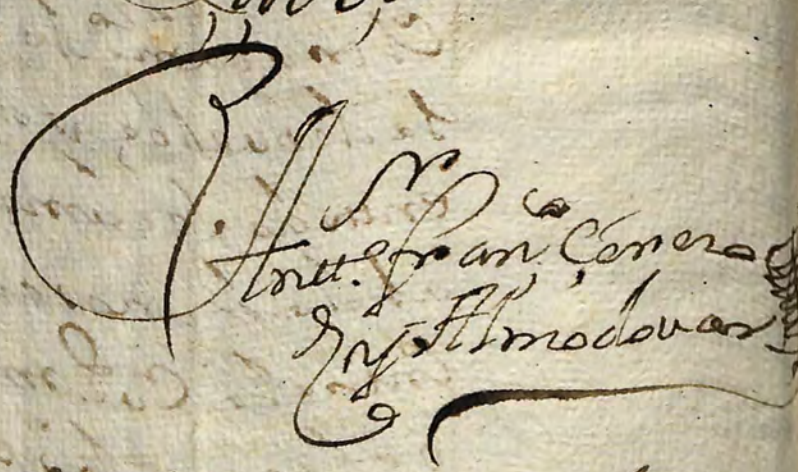 Antt.º Fran.co Çenero
y Almodovar